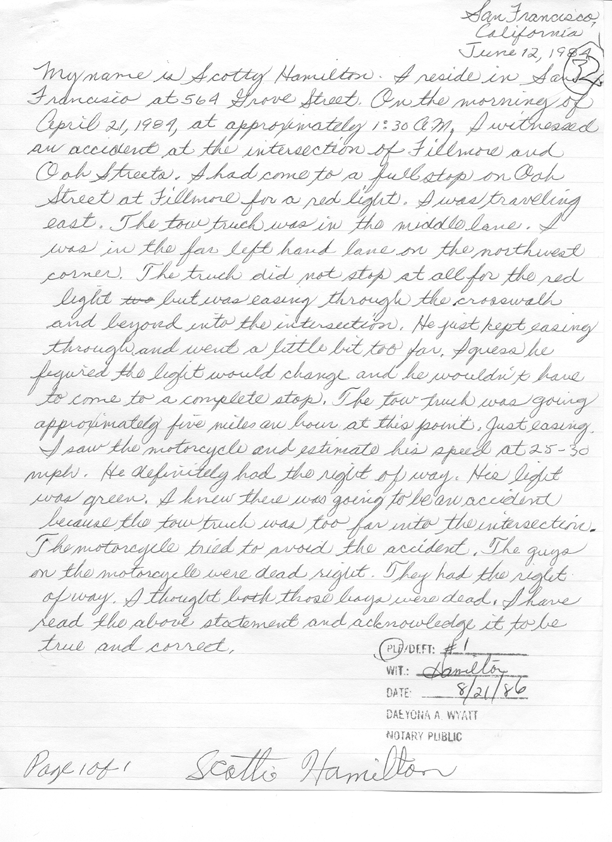 San Francisco,
California
June 12, 1984
32
My name is Scotty Hamilton. I reside in San
Francisco at 564 Grove Street. On the morning of
April 21, 1984, at approximately 1:30 A.M, I witnessed
an accident at the intersection of Fillmore and
Oak Streets. I had come to a full stop on Oak
Street at Fillmore for a red light. I was traveling
east. The tow truck was in the middle lane. I
was in the far left hand lane on the northwest
corner. The truck did not stop at all for the red
light but was easing through the crosswalk
and beyond into the intersection. He just kept easing
through and went a little bit too far. I guess he
figured the light would change and he wouldn't have
to come to a complete stop. The tow truck was going
approximately five miles an hour at this point. Just easing.
I saw the motorcycle and estimate his speed at 25-30
mph. He definitely had the right of way. His light
was green. I knew there was going to be an accident
because the tow truck was too far into the intersection.
The motorcycle tried to avoid the accident. The guys
on the motorcycle were dead right. They had the right
of way. I thought both those boys were dead. I have
read the above statement and acknowledge it to be
true and correct.
PLF/DEFT: #1
WIT.: Hamilton
DATE: 8/21/86
DAEYONA A. WYATT
NOTARY PUBLIC
Page 1 of 1 Scottie Hamilton